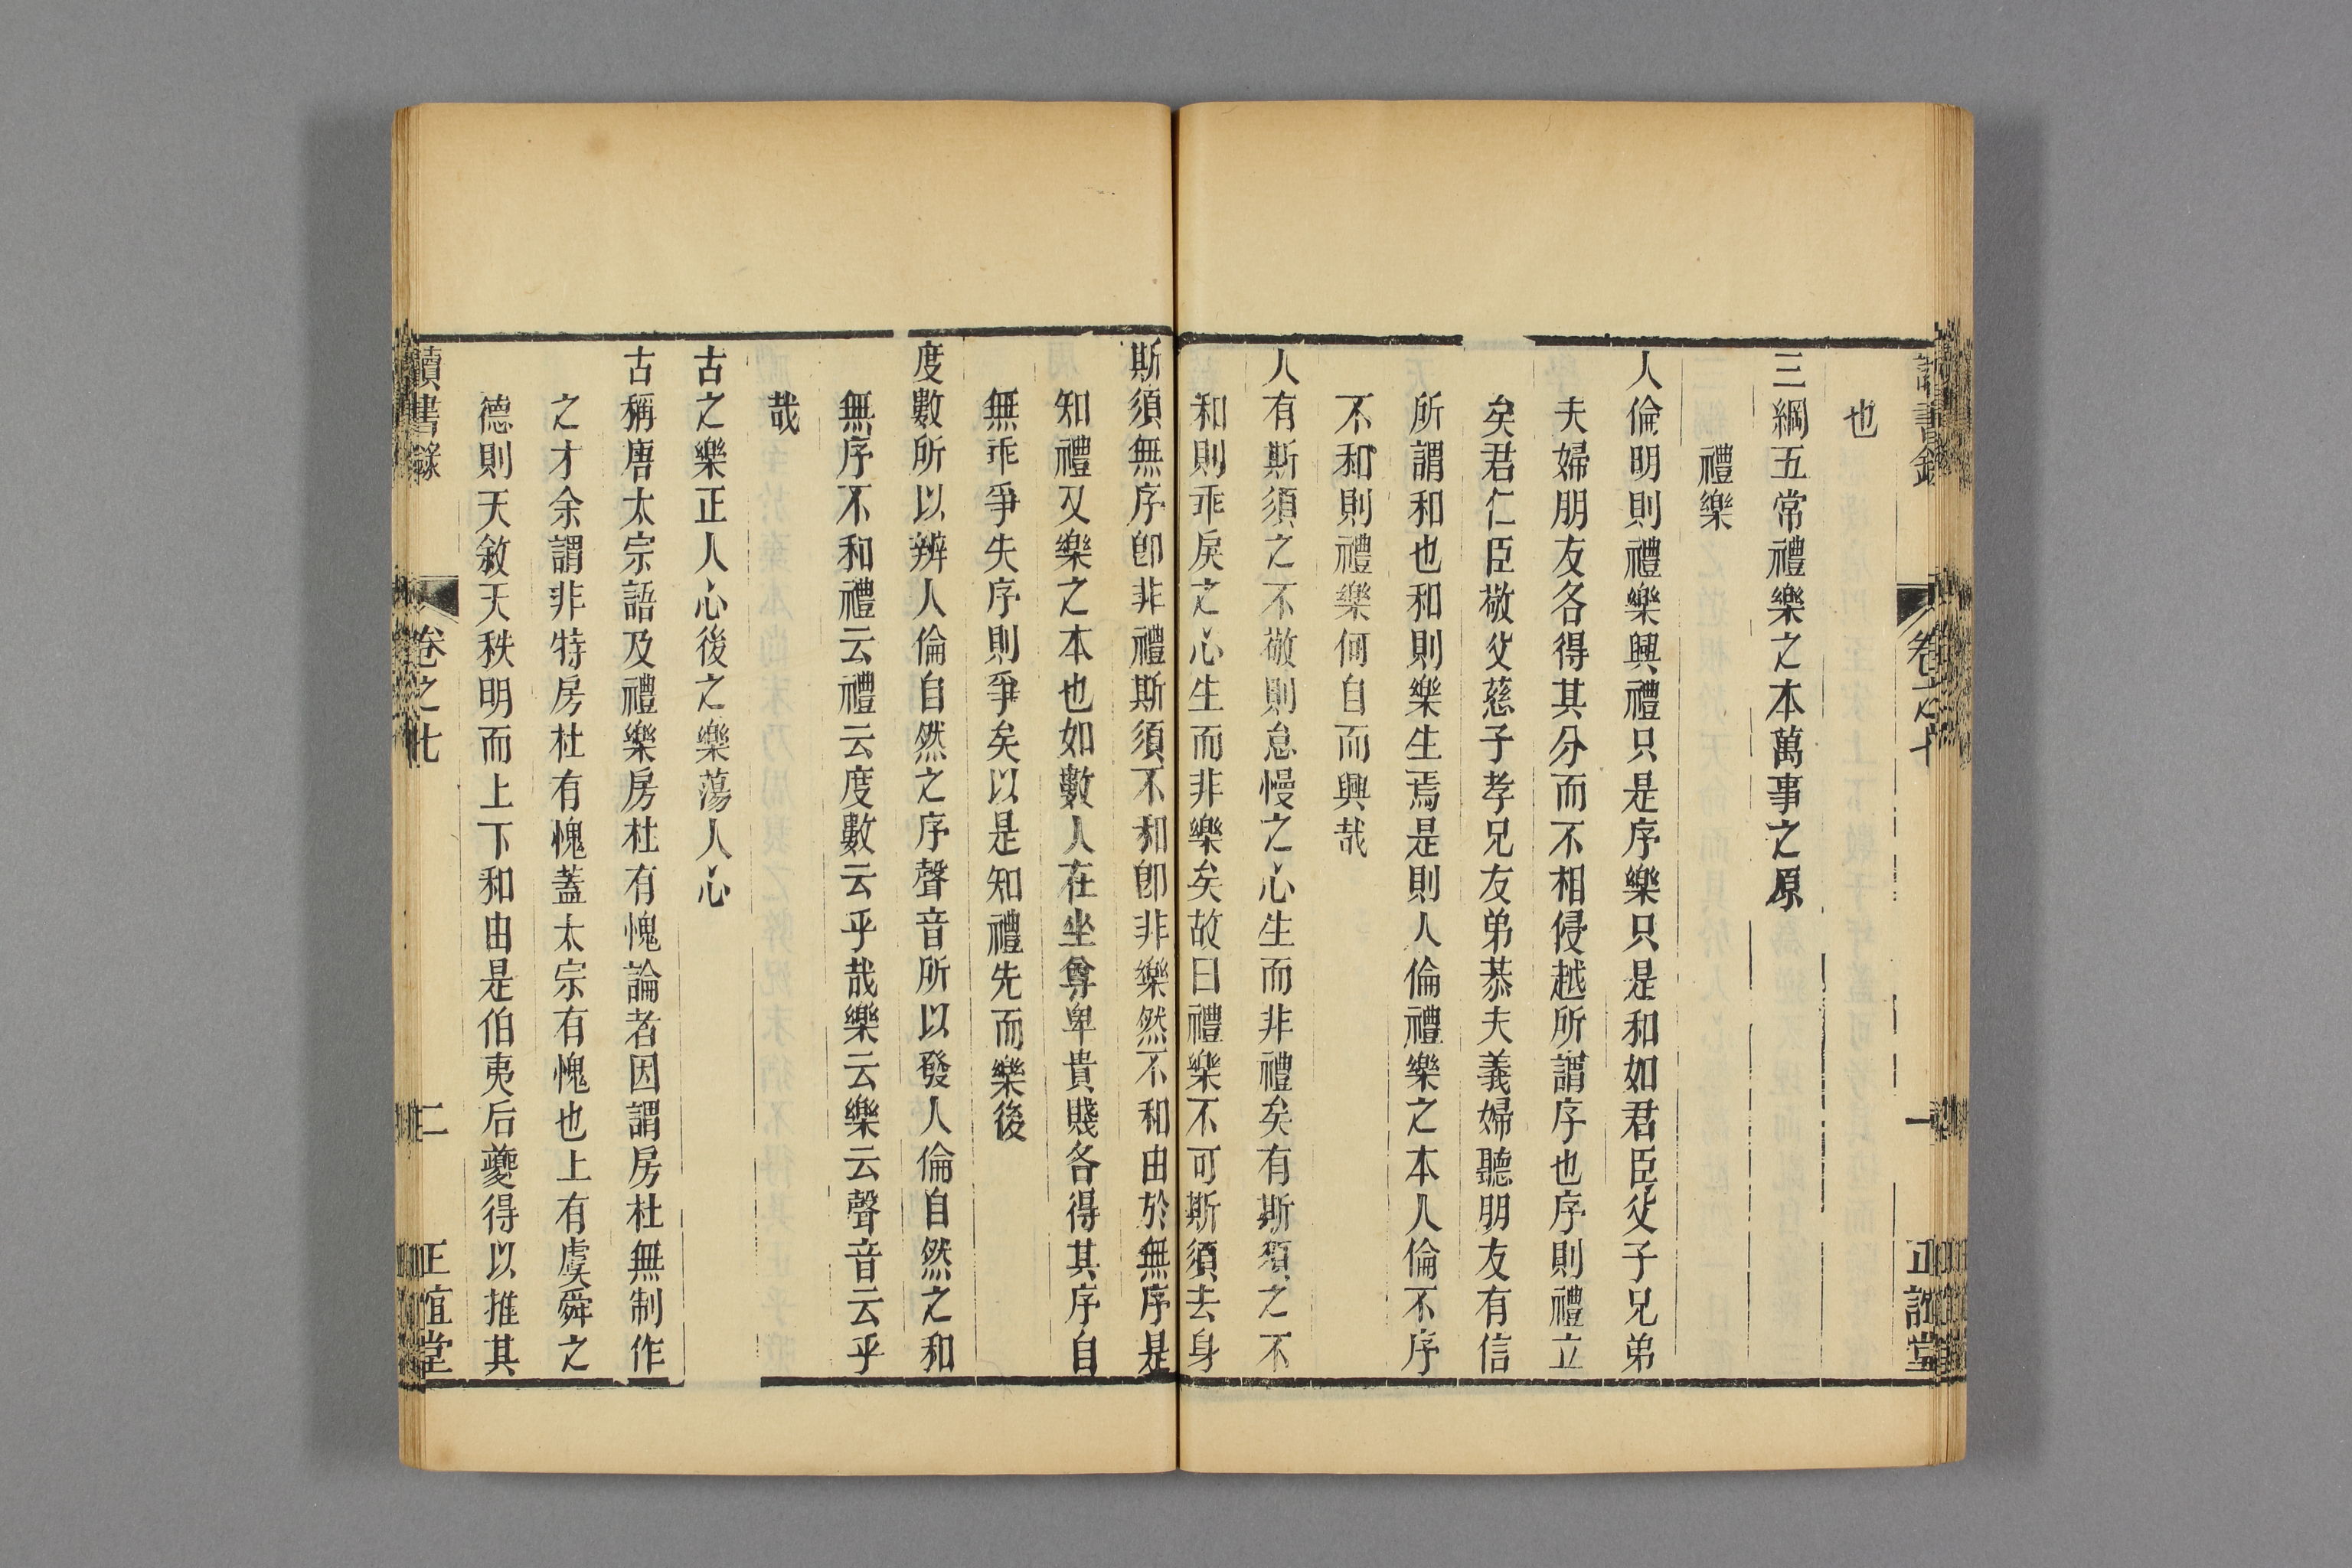 讀書錄 卷之七 一 正誼堂
也
三綱五常禮樂之本萬事之原
禮樂
人倫明則禮樂興禮只是序樂只是和如君臣父子兄弟
夫婦朋友各得其分而不相侵越所謂序也序則禮立
矣君仁臣敬父慈子孝兄友弟恭夫義婦聽朋友有信
所謂和也和則樂生焉是則人倫禮樂之本人倫不序
不和則禮樂何自而興哉
人有斯須之不敬則怠慢之心生而非禮矣有斯須之不
和則乖戾之心生而非樂矣故曰禮樂不可斯須去身
斯須無序卽非禮斯須不和卽非樂然不和由於無序是
知禮又樂之本也如數人在坐尊卑貴賤各得其序自
無乖爭失序則爭矣以是知禮先而樂後
度數所以辨人倫自然之序聲音所以發人倫自然之和
無序不和禮云禮云度數云乎哉樂云樂云聲音云乎
哉
古之樂正人心後之樂蕩人心
古稱唐太宗語及禮樂房杜有愧論者因謂房杜無制作
之才余謂非特房杜有愧蓋太宗有愧也上有虞舜之
德則天敘天秩明而上下和由是伯夷后夔得以推其
讀書錄 卷之七 二 正誼堂